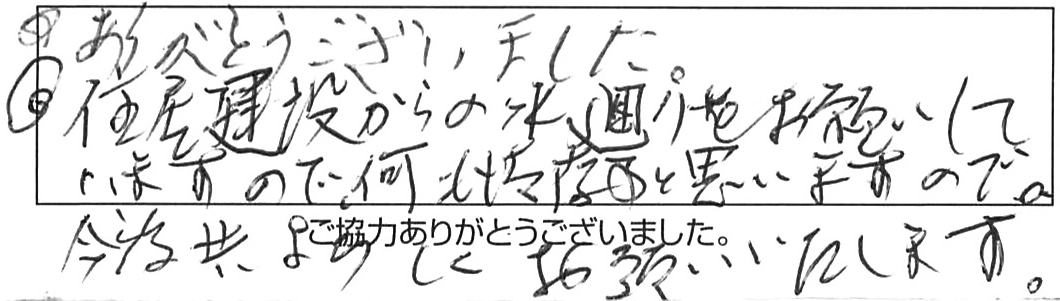 ありがとうございました。
住居建設からの水廻りをお願いして
いますので何も安心と思いますので。
ご協力ありがとうございました。
今後共よろしくお願いいたします。